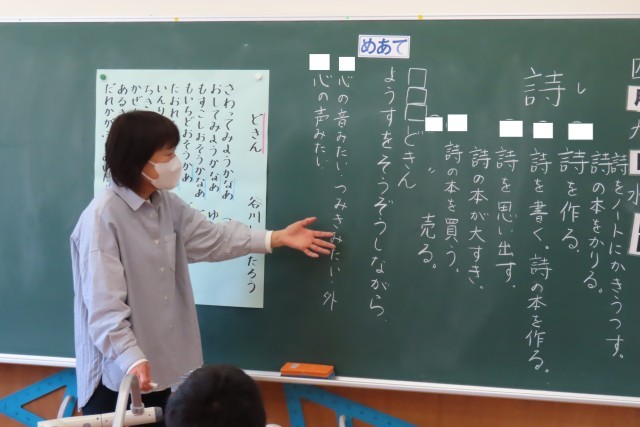 詩
し
詩をノートにかきうつす。
詩の本をかりる。
詩を作る。
詩を書く。詩の本を作る。
詩を思い出す。
詩の本が大すき。
詩の本を買う。
〃 売る。
めあて
□□□どきん
ようすをそうぞうしながら、
心の音みたい つみきみたい 外
心の声みたい
どきん 谷川し たろう
さわってみようかなあ
おしてみようかなあ ゆ
もすこしおそうかなあ
もいちどおそうかあ
たおれ
いんり
ちき
かぜ
ある
だれかが